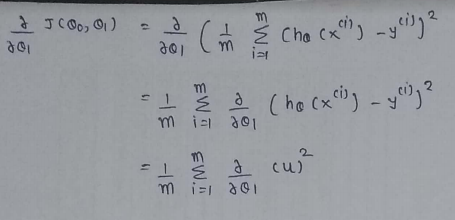 ∂/∂θ₁ J(θ₀,θ₁) = ∂/∂θ₁ ( 1/m Σᵢ₌₁ᵐ (hθ(x⁽ⁱ⁾) - y⁽ⁱ⁾)²
= 1/m Σᵢ₌₁ᵐ ∂/∂θ₁ (hθ(x⁽ⁱ⁾) - y⁽ⁱ⁾)²
= 1/m Σᵢ₌₁ᵐ ∂/∂θ₁ (u)²